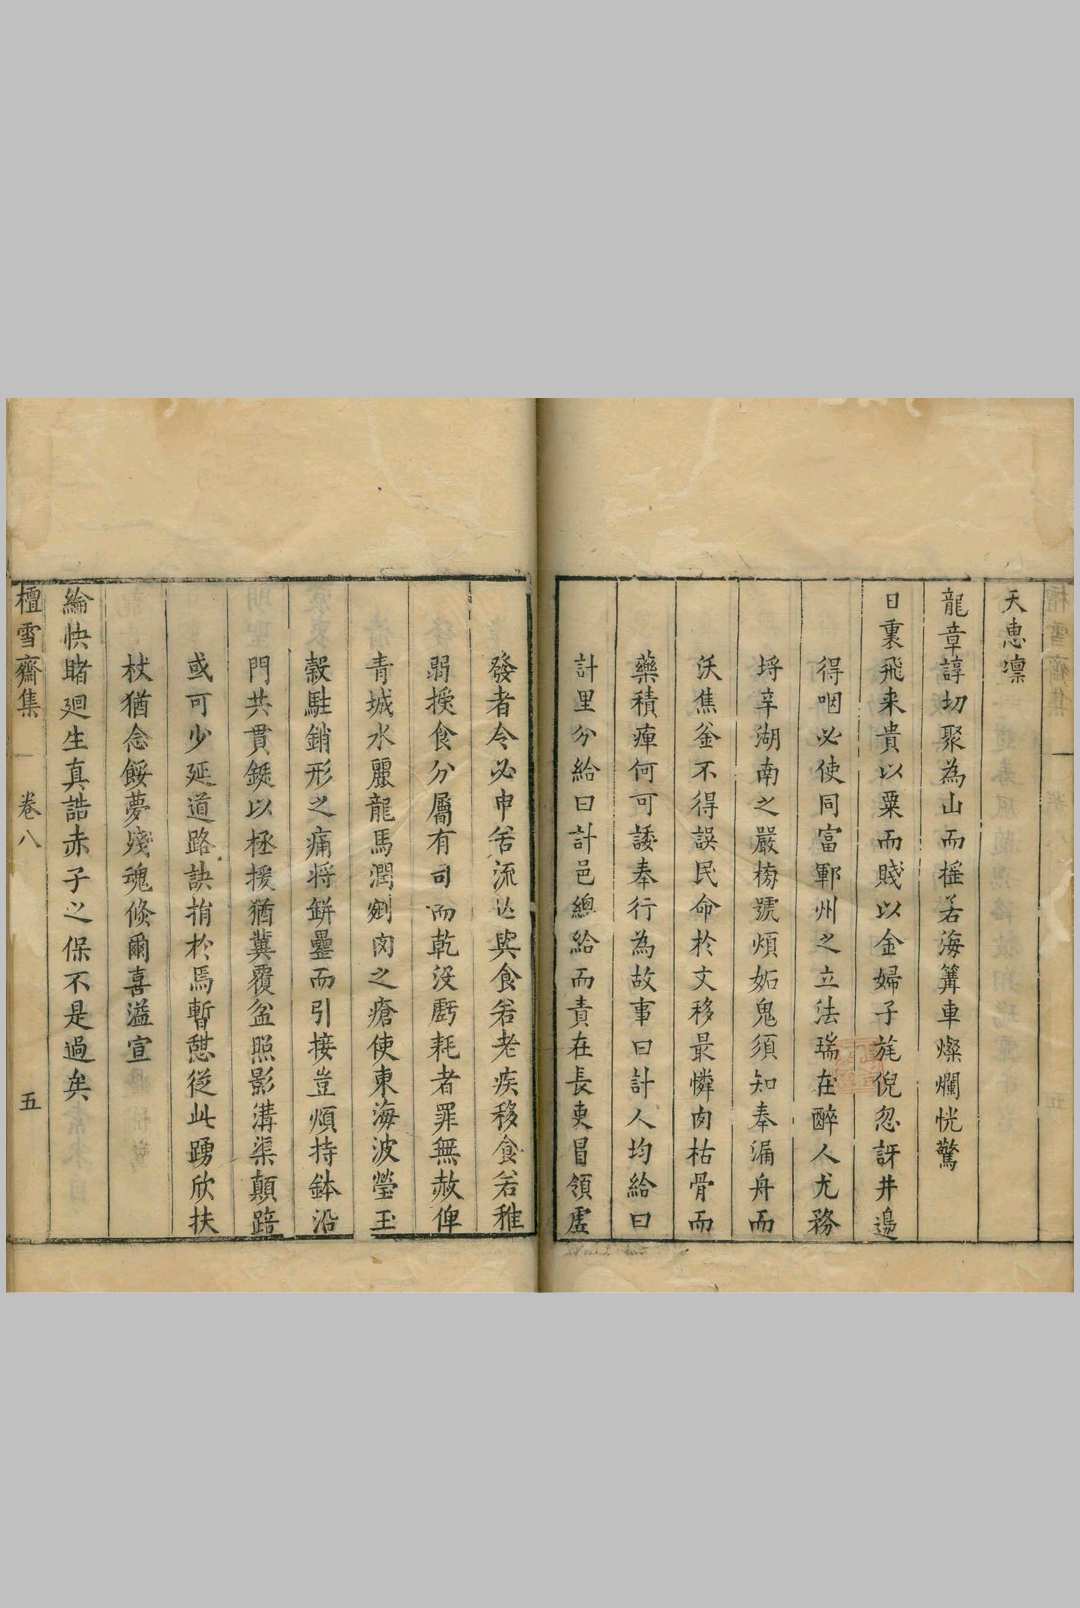 天恵凛
龍章諄切聚為山而揺若海篝車燦爛恍驚
日裏飛来貴以粟而賤以金婦子旄倪忽訝井邊
得咽必使同富鄆州之立法瑞在醉人尤務
埒辛湖南之嚴榜號煩妬鬼須知奉漏舟而
沃焦釜不得誤民命於文移最憐肉枯骨而
藥積痺何可諉奉行為故事曰計人均給曰
計里分給曰計邑總給而責在長吏冒領虛
發者令必申苦流亾與食若老疾移食若稚
弱授食分屬有司而乾没虧耗者罪無赦俾
青城水麗龍馬潤剜肉之瘡使東海波瑩玉
穀駐銷形之痛将餅罍而引接豈煩持鉢沿
門共貫鋌以拯援猶冀覆盆照影溝渠顛踣
或可少延道路訣捐於焉暫憇從此踴欣扶
杖猶念餒夢殘魂倐爾喜溢宣
綸快睹廻生真誥赤子之保不是過矣
檀雪齋集
卷八
五